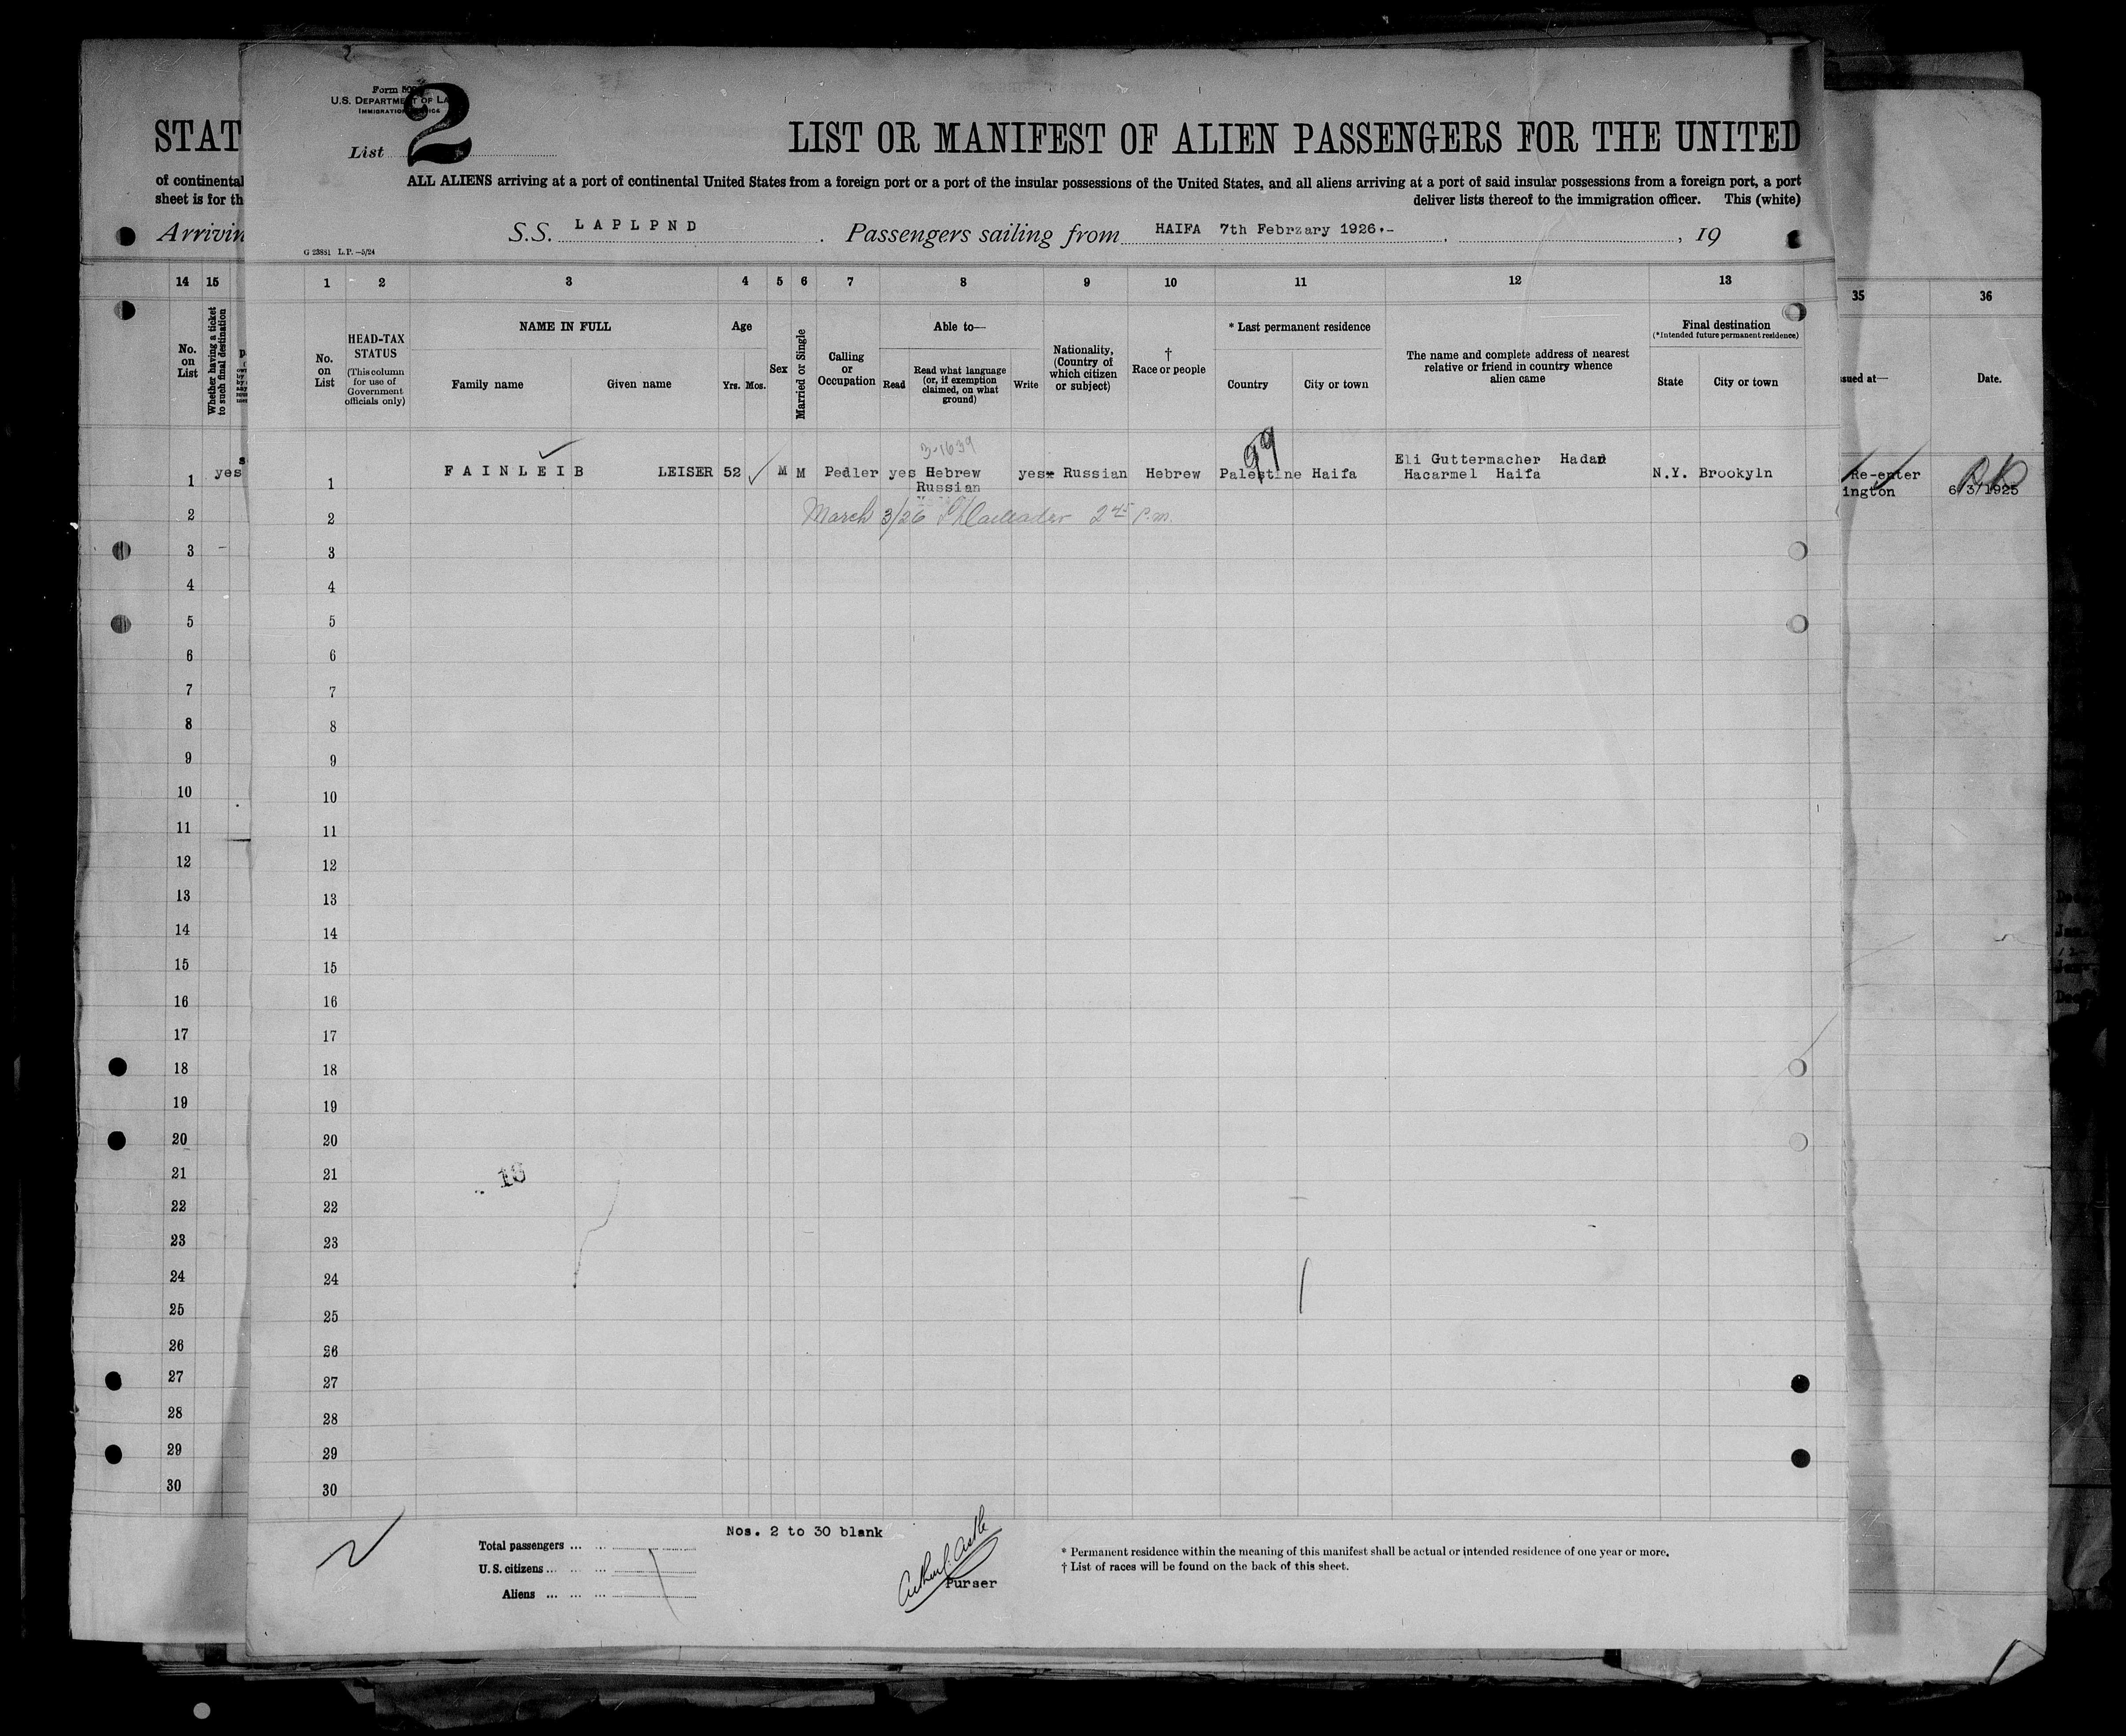 Form 500
U.S. DEPARTMENT OF LA
IMMIGRATION
2
List
LIST OR MANIFEST OF ALIEN PASSENGERS FOR THE UNITED
ALL ALIENS arriving at a port of continental United States from a foreign port or a port of the insular possessions of the United States, and all aliens arriving at a port of said insular possessions from a foreign port, a port
deliver lists thereof to the immigration officer. This (white)
S.S. LAPLPND . Passengers sailing from HAIFA 7th Febrzary 1926.- , 19
G 23881 L.P.—5/24
STAT
of continental
sheet is for th
Arrivin
14 15
No. on List
Whether having a ticket to such final destination
1 2 3 4 5 6 7 8 9 10 11 12 13
No. on List
HEAD-TAX STATUS
(This column for use of Government officials only)
NAME IN FULL
Family name Given name
Age
Yrs. Mos.
Sex
Married or Single
Calling or Occupation
Able to—
Read
Read what language (or, if exemption claimed, on what ground)
Write
Nationality, (Country of which citizen or subject)
† Race or people
* Last permanent residence
Country City or town
The name and complete address of nearest relative or friend in country whence alien came
Final destination
(*Intended future permanent residence)
State City or town
35 36
sued at— Date.
3-1639
99
1 yes
1 FAINLEIB LEISER 52 M M Pedler yes Hebrew yes Russian Hebrew Palestine Haifa Eli Guttermacher Hadar N.Y. Brookyln
Russian Hacarmel Haifa
Re-enter
ington 6/3/1925
March 3/26 2 45 P.m.
2 2
3 3
4 4
5 5
6 6
7 7
8 8
9 9
10 10
11 11
12 12
13 13
14 14
15 15
16 16
17 17
18 18
19 19
20 20
21 21
22 22
23 23
24 24
25 25
26 26
27 27
28 28
29 29
30 30
Nos. 2 to 30 blank
Total passengers ... ...
U.S. citizens ... ... ...
Aliens ... ... ...
Purser
* Permanent residence within the meaning of this manifest shall be actual or intended residence of one year or more.
† List of races will be found on the back of this sheet.